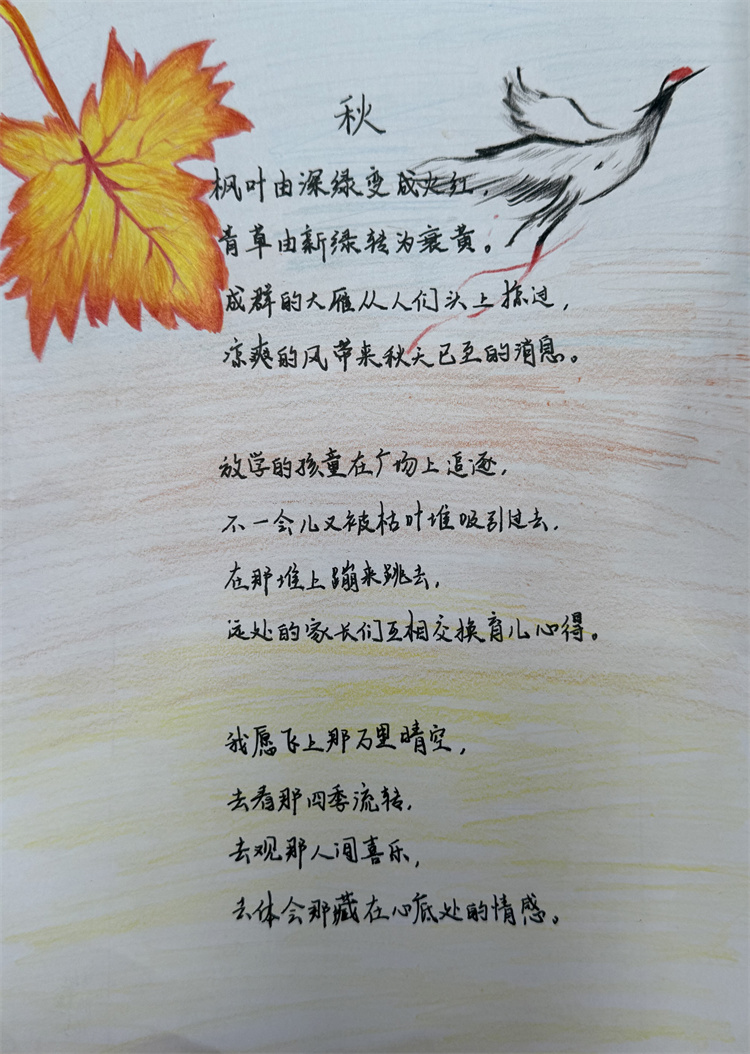 秋
枫叶由深绿变成火红，
青草由新绿转为衰黄。
成群的大雁从人们头上掠过，
凉爽的风带来秋天已至的消息。
放学的孩童在广场上追逐，
不一会儿又被枯叶堆吸引过去，
在那堆上蹦来跳去，
远处的家长们互相交换育儿心得。
我愿飞上那万里晴空，
去看那四季流转，
去观那人间喜乐，
去体会那藏在心底处的情感。